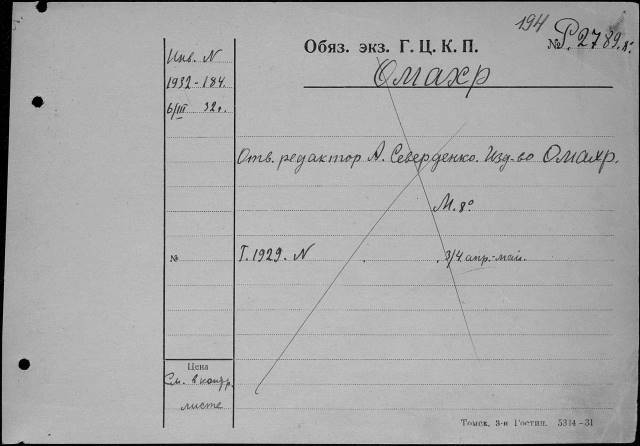 194
Обяз. экз. Г. Ц. К. П.
№ Р. 2789.8°
Омахр
Инв. N
1932 - 184.
6/III 32 г.
Отв. редактор А. Северденко. Изд-во Омахр.
М. 8°
№
Г. 1929. N 3/4 апр.-май.
Цена
См. в контр.
листе
Томск, 3-я Гостип. 5314-31